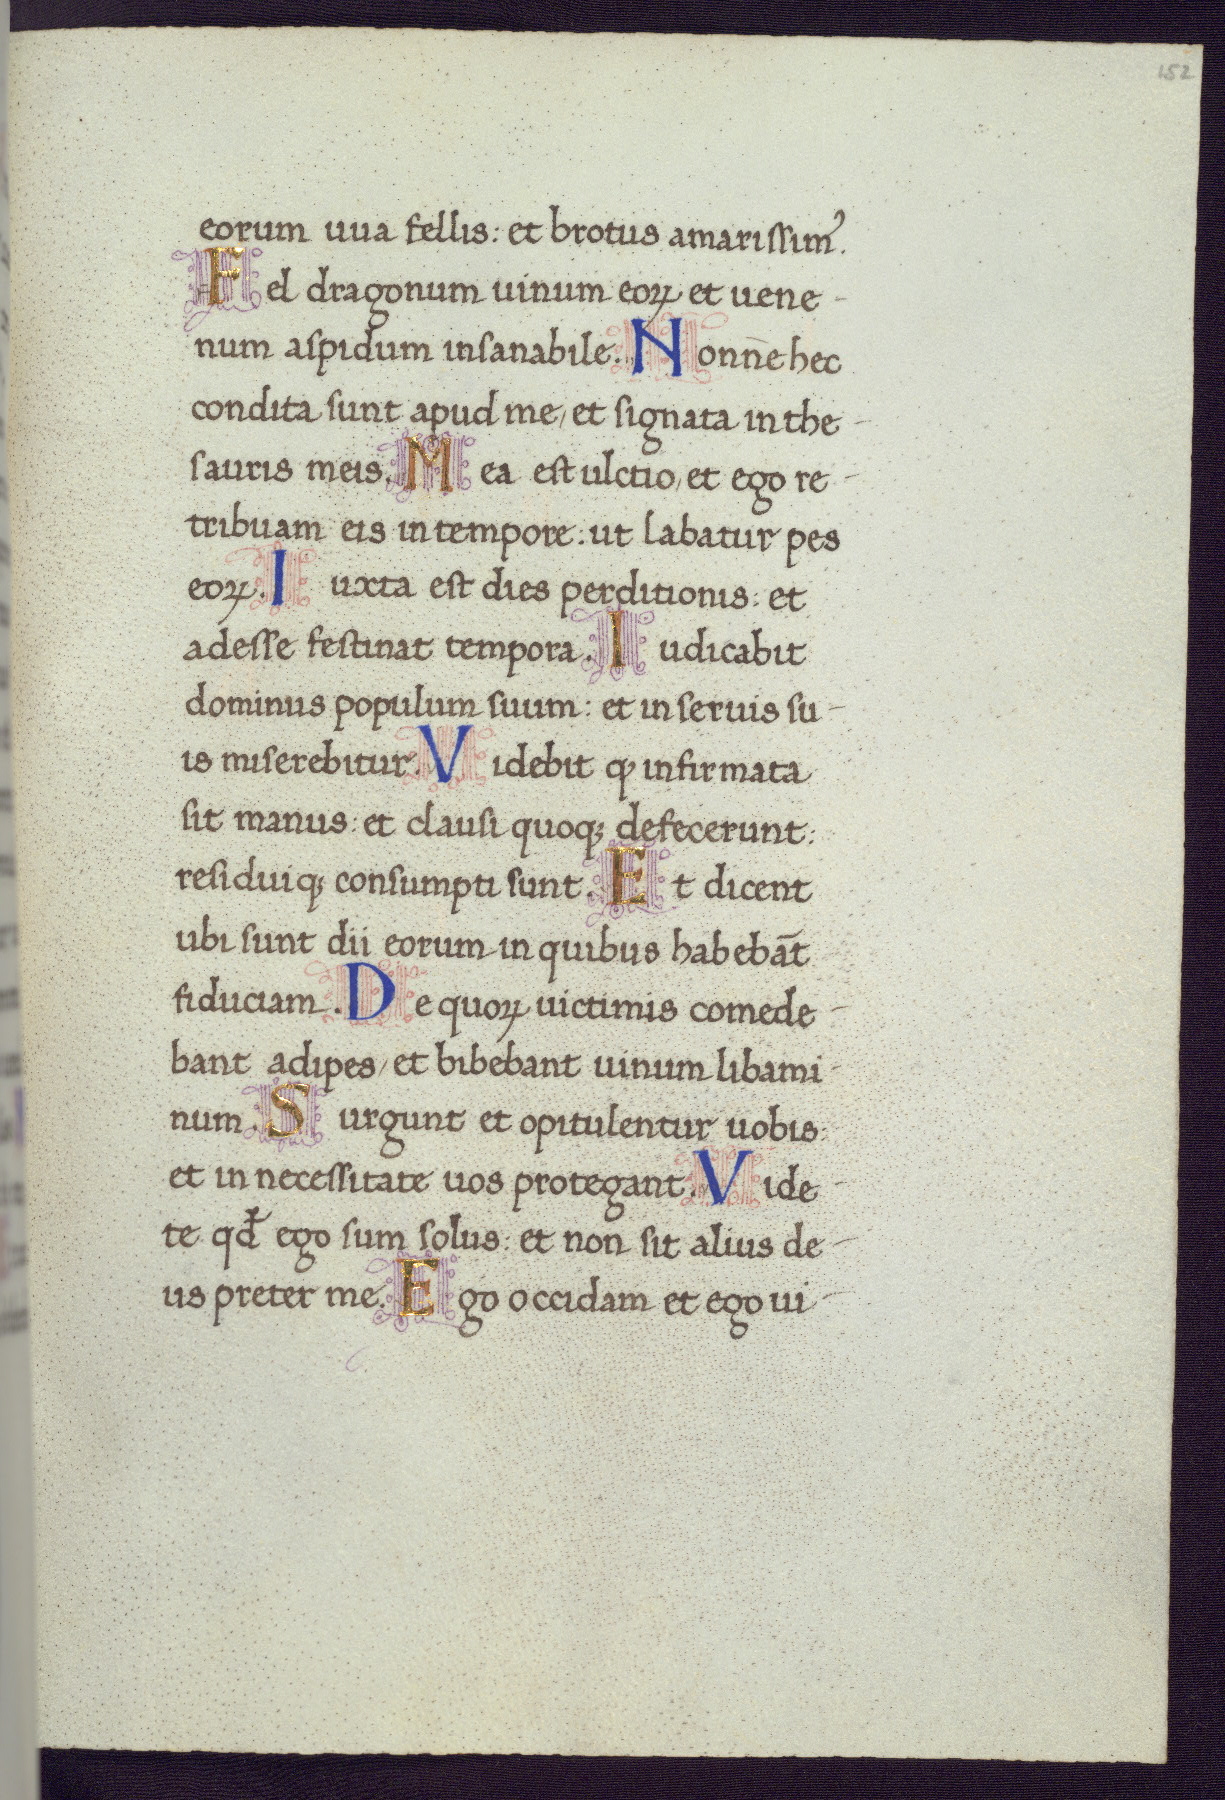 152
eorum uua fellis: et brotus amarissimꝰ.
Fel dragonum uinum eoꝝ et uene-
num aspidum insanabile. Nonn̄e hec
condita sunt apud me, et signata in the-
sauris meis. Mea est ulctio, et ego re-
tribuam eis in tempore: ut labatur pes
eoꝝ. Iuxta est dies perditionis: et
adesse festinat tempora. Iudicabit
dominus populum suum: et in seruis su-
is miserebitur. Videbit ꝙ infirmata
sit manus: et clausi quoqꝫ defecerunt:
residuiqꝫ consumpti sunt. Et dicent
ubi sunt dii eorum in quibus habebāt
fiduciam. De quoꝝ uictimis comede-
bant adipes, et bibebant uinum libami-
num. Surgunt et opitulentur uobis:
et in necessitate uos protegant. Vide-
te qđ ego sum solus: et non sit alius de-
us preter me. Ego occidam et ego ui-